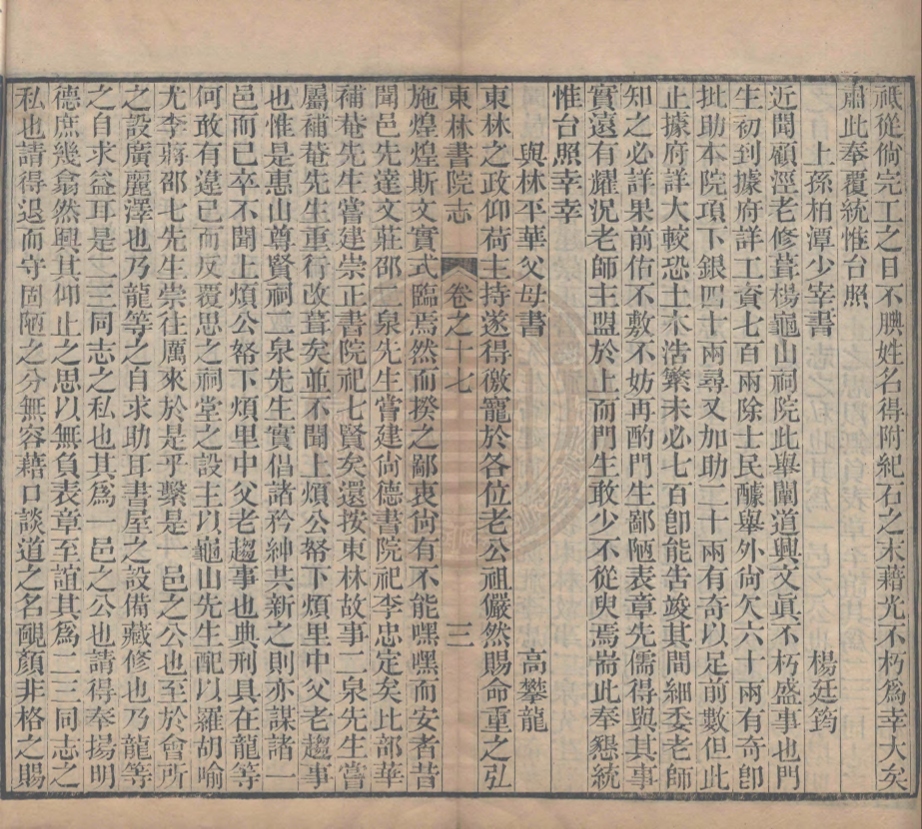 祗從倘完工之日不腆姓名得附紀石之末藉光不朽爲幸大矣
肅此奉覆統惟台照
上孫柏潭少宰書 楊廷筠
近聞顧涇老修葺楊龜山祠院此舉闡道興文眞不朽盛事也門
生初到據府詳工資七百兩除士民醵舉外尙欠六十兩有奇卽
批助本院項下銀四十兩尋又加助二十兩有奇以足前數但此
止據府詳大較恐土木浩繁未必七百卽能告竣其間細委老師
知之必詳果前佑不敷不妨再酌門生鄙陋表章先儒得與其事
實遠有耀況老師主盟於上而門生敢少不從臾焉耑此奉懇統
惟台照幸幸
與林平華父母書 高攀龍
東林之政仰荷主持遂得徼寵於各位老公祖儼然賜命重之弘
東林書院志 卷之十七 三
施煌煌斯文實式臨焉然而揆之鄙衷尙有不能嘿嘿而安者昔
聞邑先達文莊邵二泉先生嘗建尙德書院祀李忠定矣比部華
補菴先生嘗建崇正書院祀七賢矣還按東林故事二泉先生嘗
屬補菴先生重行改葺矣並不聞上煩公帑下煩里中父老趨事
也惟是惠山尊賢祠二泉先生實倡諸矜紳共新之則亦謀諸一
邑而已卒不聞上煩公帑下煩里中父老趨事也典刑具在龍等
何敢有違已而反覆思之祠堂之設主以龜山先生配以羅胡喻
尤李蔣邵七先生崇往厲來於是乎繫是一邑之公也至於會所
之設廣麗澤也乃龍等之自求助耳書屋之設備藏修也乃龍等
之自求益耳是二三同志之私也其爲一邑之公也請得奉揚明
德庶幾翕然興其仰止之思以無負表章至誼其爲二三同志之
私也請得退而守固陋之分無容藉口談道之名靦顏非格之賜